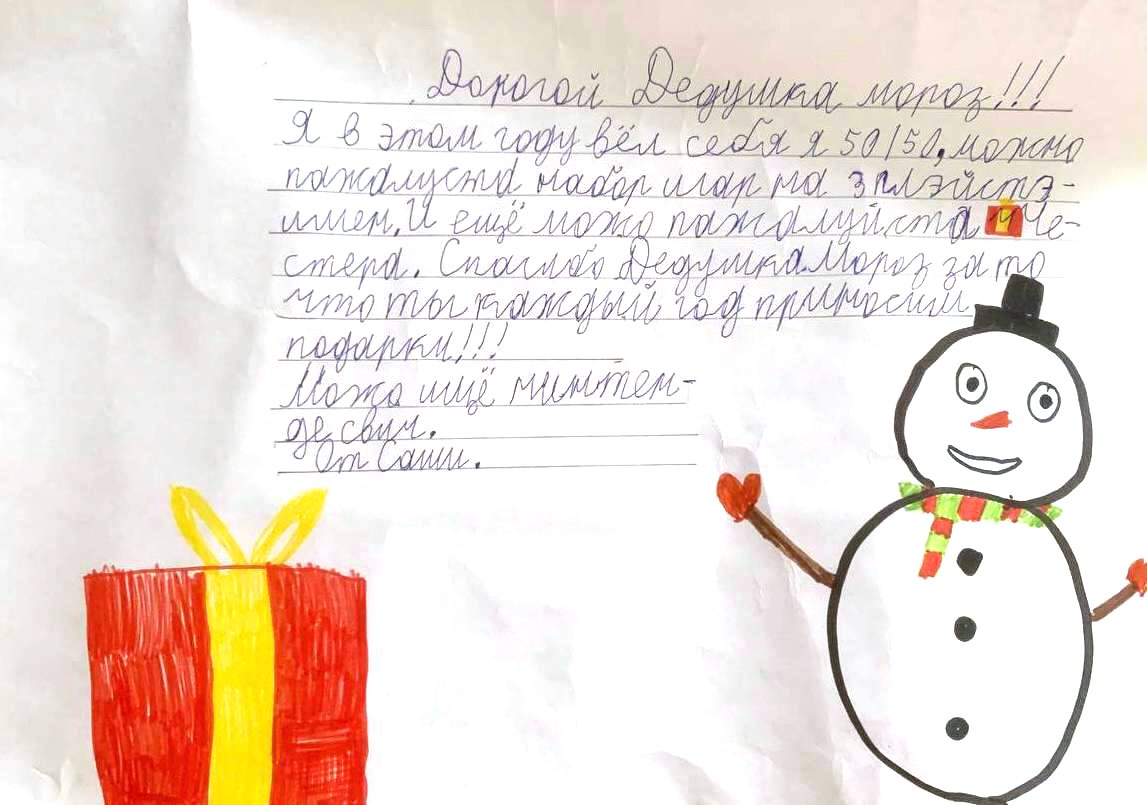 Дорогой Дедушка мороз!!!
Я в этом году вёл себя я 50/50, можно
пажалуста набор игар на 3 плэйстэ-
ишен. И ещё можо пажалуйста и Че-
стера. Спасибо Дедушка Мороз за то
что ты каждый год приносиш
подарки!!!
Можо ищё нинтен-
де свич.
От Саши.